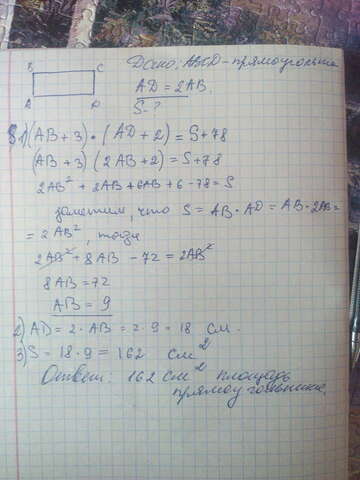 B C Дано: ABCD - прямоугольник
A D AD = 2AB.
S - ?
1) (AB + 3) • (AD + 2) = S + 78
(AB + 3) (2AB + 2) = S + 78
2AB² + 2AB + 6AB + 6 - 78 = S
заметим, что S = AB · AD = AB · 2AB =
= 2AB², тогда
2AB² + 8AB - 72 = 2AB²
8AB = 72
AB = 9
2) AD = 2 · AB = 2 · 9 = 18 см.
3) S = 18 · 9 = 162 см²
Ответ: 162 см² площадь
прямоугольника.